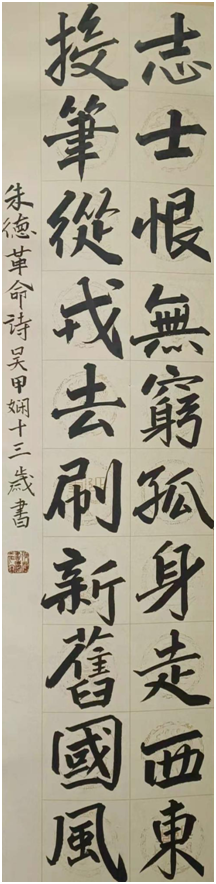 志士恨無窮孤身走西東
投筆從戎去刷新舊國風
朱德革命詩吴甲娴十三歲書